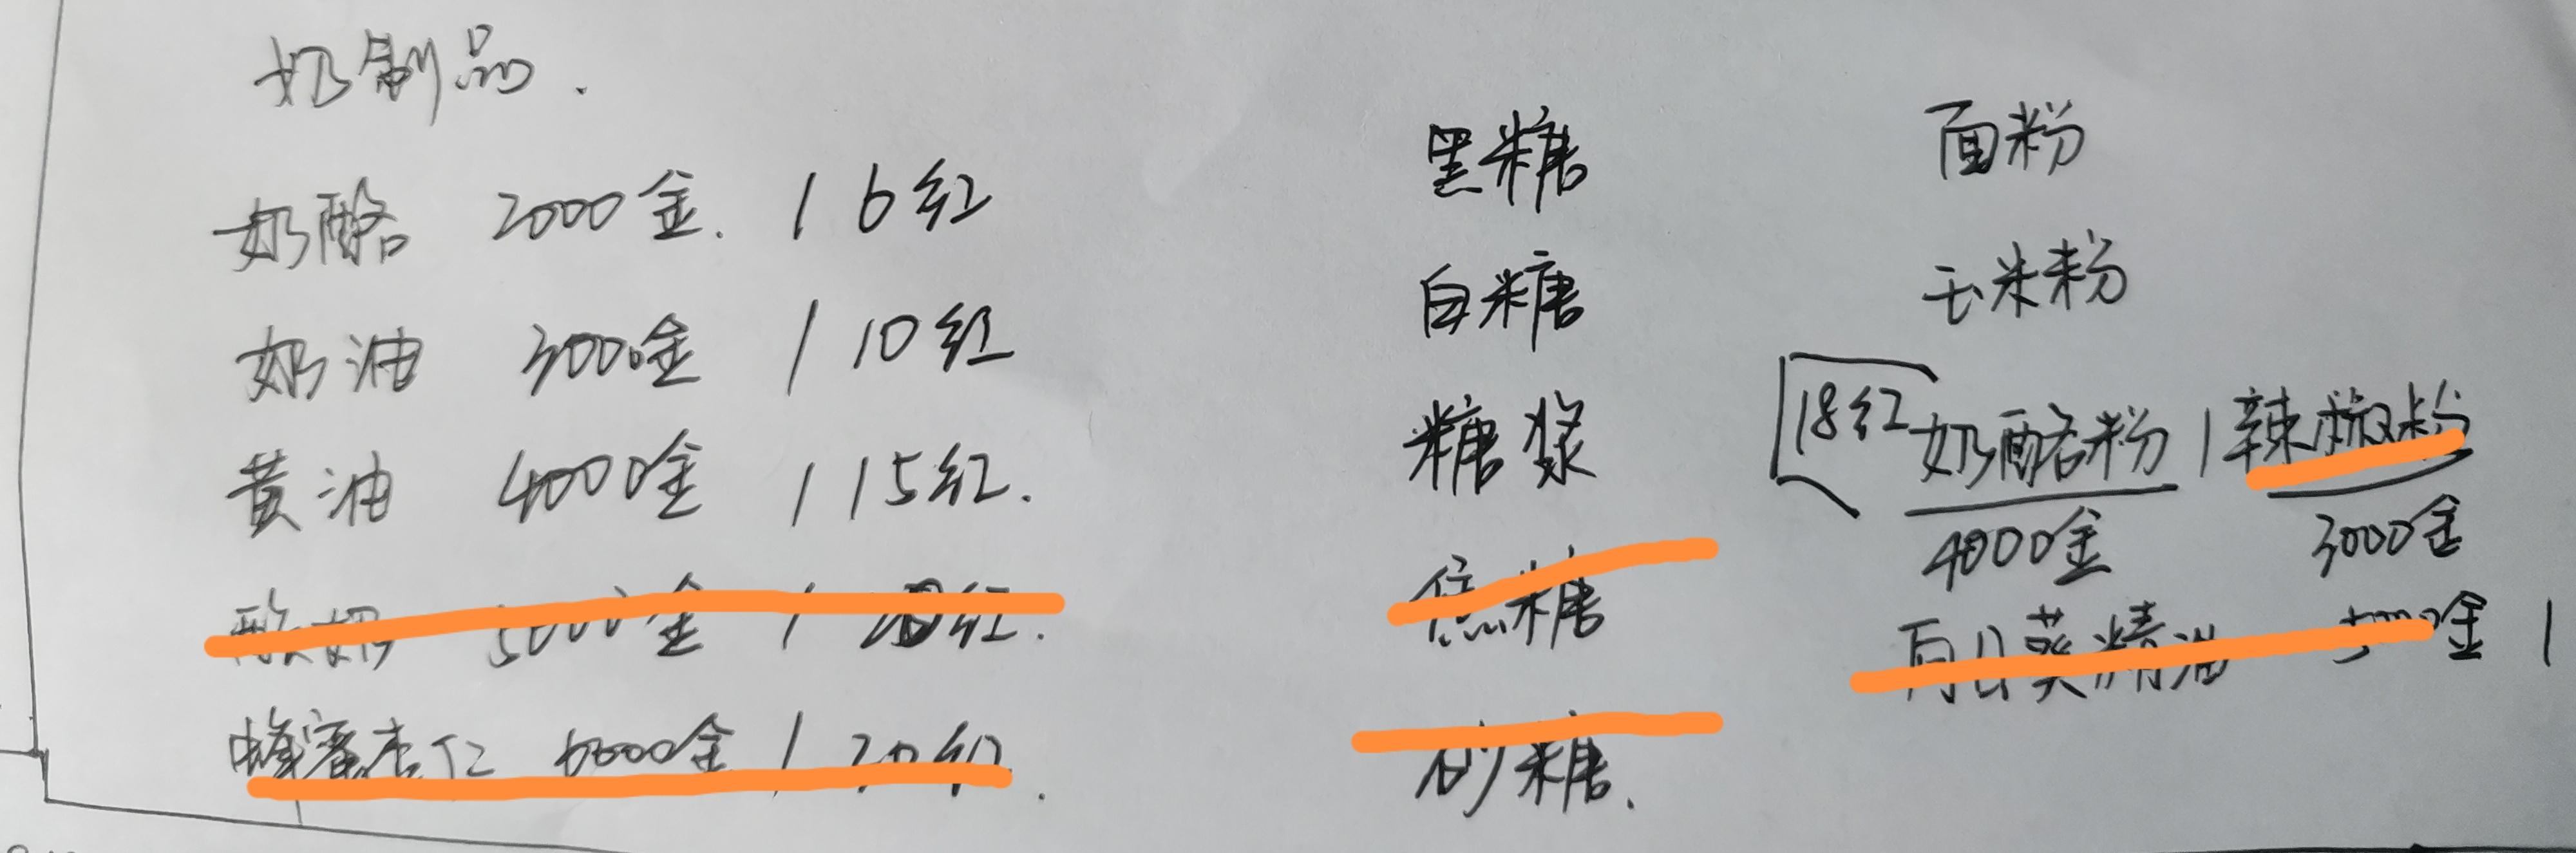 奶制品.
奶酪 2000金. / 6红
奶油 3000金 / 10红
黄油 4000金 / 15红.
酸奶 5000金 / 20红.
蜂蜜杏仁 6000金 / 20红.
黑糖
白糖
糖浆
焦糖
砂糖.
面粉
玉米粉
18红 奶酪粉 / 辣椒粉
4000金 3000金
向日葵精油 5000金 /